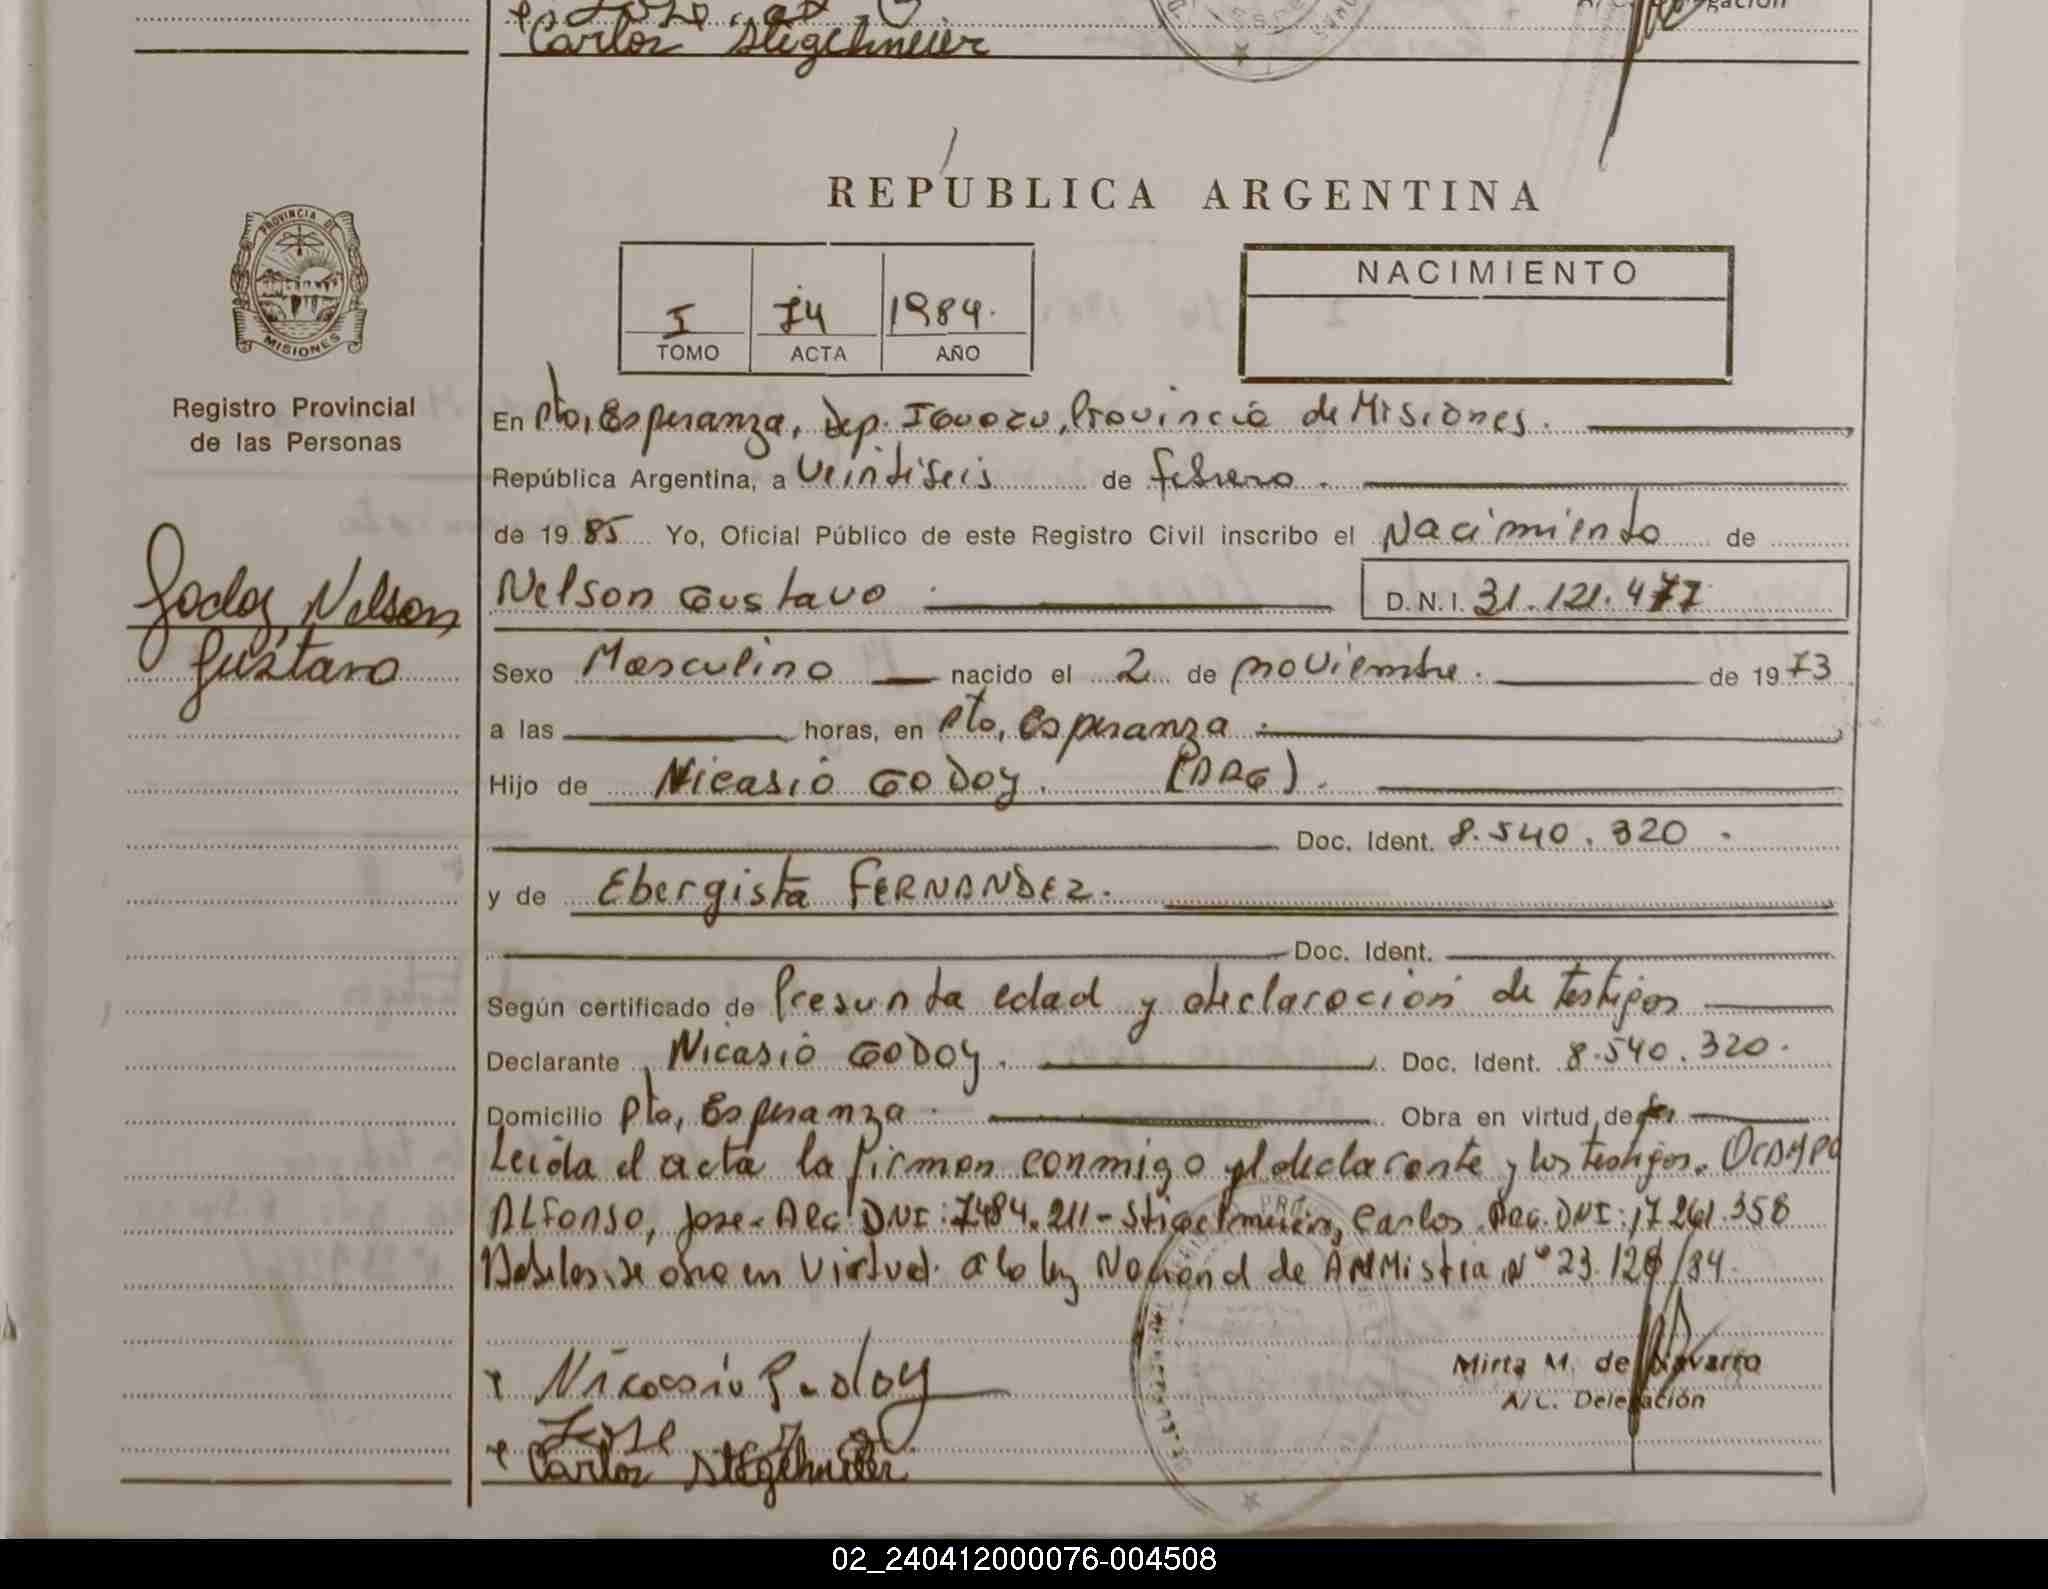 Carlos Stigelmeier
REPÚBLICA ARGENTINA
PROVINCIA DE
MISIONES
Registro Provincial
de las Personas
Godoy Nelson
Gustavo
I 74 1984.
TOMO ACTA AÑO
NACIMIENTO
En Pto, Esperanza, Dep. IGUAZU, Provincia de Misiones.
República Argentina, a Veintiseis de febrero.
de 1985 Yo, Oficial Público de este Registro Civil inscribo el Nacimiento de
Nelson Gustavo D.N.I. 31.121.477
Sexo Masculino nacido el 2 de noviembre. de 1973
a las horas, en Pto, Esperanza
Hijo de Nicasio GODOY. (ARG).
Doc. Ident. 8.540.320.
y de Ebergista FERNANDEZ.
Doc. Ident.
Según certificado de Presunta edad y declaracion de testigos
Declarante Nicasio GODOY. Doc. Ident. 8.540.320.
Domicilio Pto, Esperanza. Obra en virtud de
Leida el acta la firman conmigo el declarante y los testigos. OCAMPO
ALFONSO, Jose. ARG. DNI: 7484.211 - Stigelmeier, Carlos. ARG. DNI: 17.261.358
se obro en Virtud. a la ley Nacional de ANMistia Nº 23.126/84.
Nicasio Godoy
Mirta M. de Navarro
A/C. Delegación
Jose
Carlos Stigelmeier
02_240412000076-004508